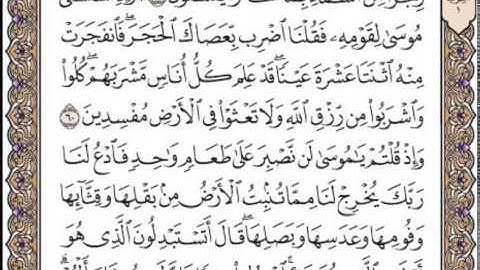 مُوسَىٰ لِقَوْمِهِۦ فَقُلْنَا ٱضْرِب بِّعَصَاكَ ٱلْحَجَرَ ۖ فَٱنفَجَرَتْ
مِنْهُ ٱثْنَتَا عَشْرَةَ عَيْنًا ۖ قَدْ عَلِمَ كُلُّ أُنَاسٍ مَّشْرَبَهُمْ ۖ كُلُوا۟
وَٱشْرَبُوا۟ مِن رِّزْقِ ٱللَّهِ وَلَا تَعْثَوْا۟ فِى ٱلْأَرْضِ مُفْسِدِينَ ۝٦٠
وَإِذْ قُلْتُمْ يَـٰمُوسَىٰ لَن نَّصْبِرَ عَلَىٰ طَعَامٍ وَٰحِدٍ فَٱدْعُ لَنَا
رَبَّكَ يُخْرِجْ لَنَا مِمَّا تُنۢبِتُ ٱلْأَرْضُ مِنۢ بَقْلِهَا وَقِثَّآئِهَا
وَفُومِهَا وَعَدَسِهَا وَبَصَلِهَا ۖ قَالَ أَتَسْتَبْدِلُونَ ٱلَّذِى هُوَ